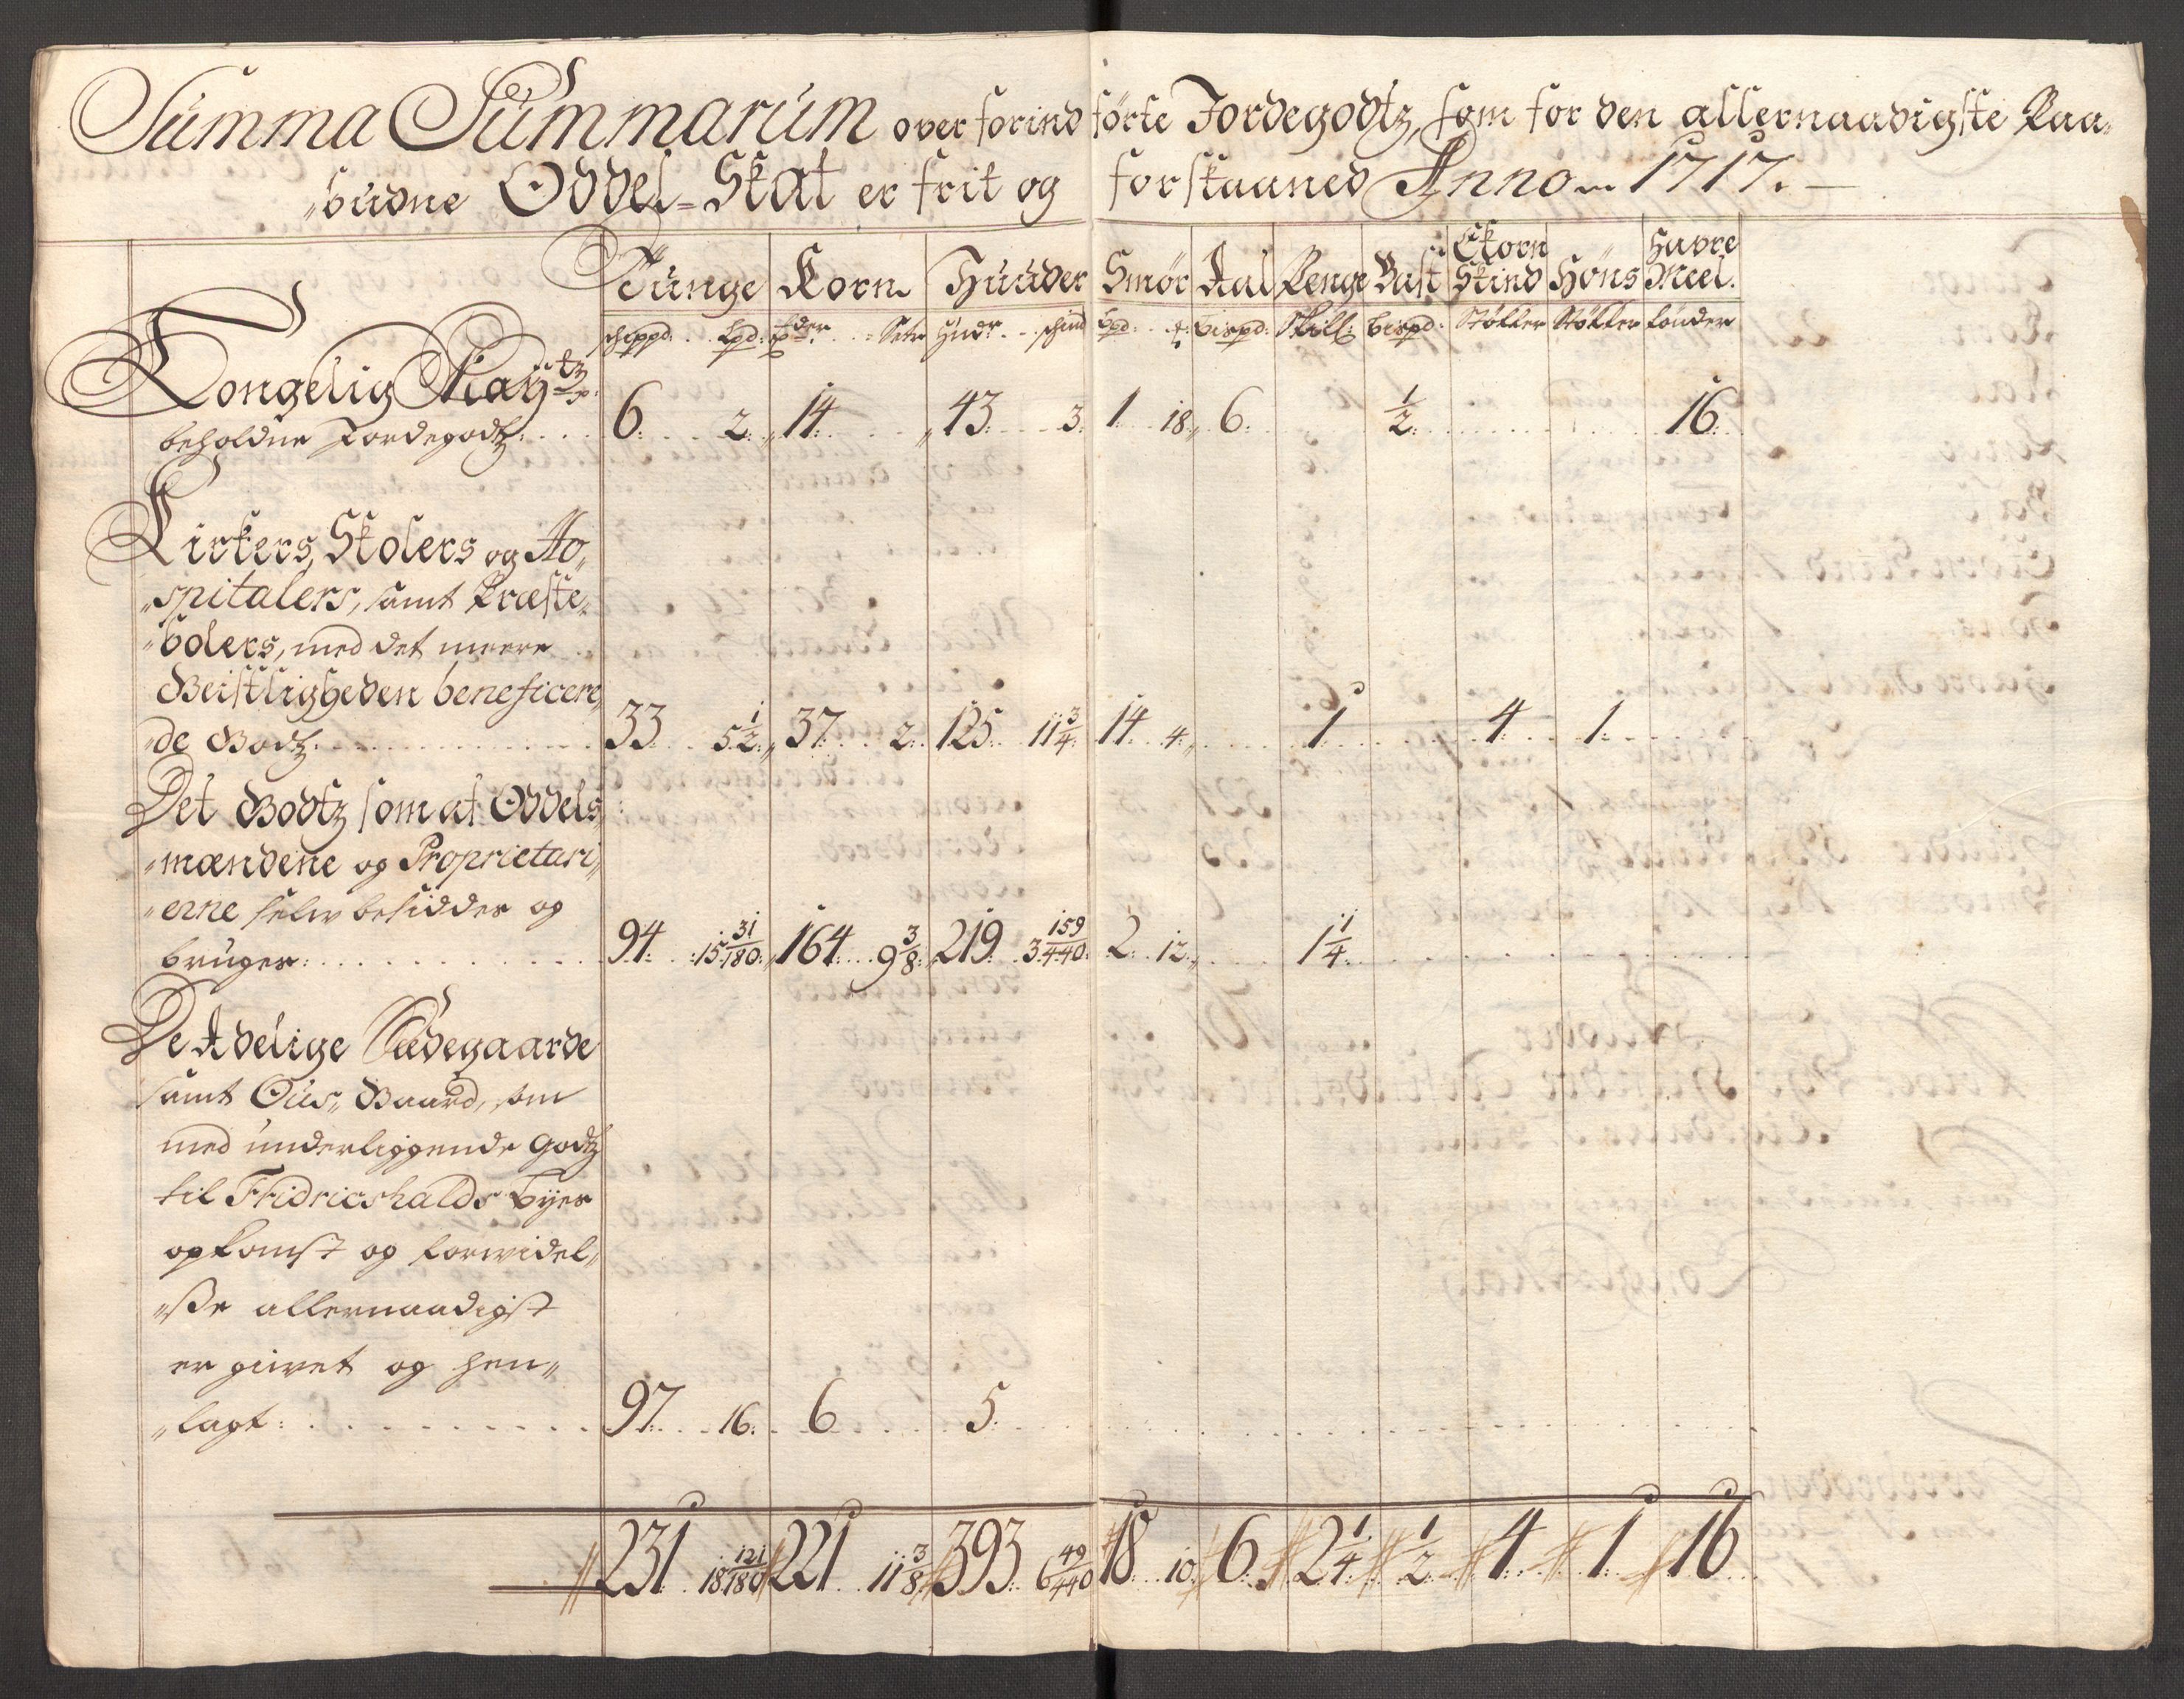 Summa Summarum over forind førte Jordegodtz, som for den allernaadigste Paa„
„budne Oddel-Skat er frit og forskaaned Anno 1717.
Tunge Korn Huuder Smør Aal Penge Vast Ekorn Skind Høns Havre Meel.
schippd: Lpd: pder: Setr Hudr. schind bpd: ℔: bispd: skill: bispd: Støkker Støkker tønder
Kongelig Maÿtz
beholdne Jordegodtz: 6. 2. 14. 43. 3. 1. 18. 6. 1/2. 16.
Kirkers, Skolers og Ho„
„spitalers, samt Præste„
„bolers, med det meere
Geistligheden beneficere„
„de Godtz. 33. 5 1/2. 37. 2. 125. 11 3/4. 14. 4. 1. 4. 1.
Det Godtz som af Oddels„
„mændene og Proprietari„
„erne selv besidder og
bruger: 94. 15 31/180. 164. 9 3/8. 219. 3 159/440. 2. 12. 1 1/4.
De Adelige Sædegaarde
samt Øus„ Gaard, som
med underliggende Godtz
til Fridricshalds Byes
opkomst og forvidel„
„ße allernaadigst
er givet og hen„
„lagt: 97. 16. 6. 5.
231. 18 121/180 221 11 3/8 393. 6 49/440 18. 10. 6. 2 1/4 1/2 4. 1. 16.